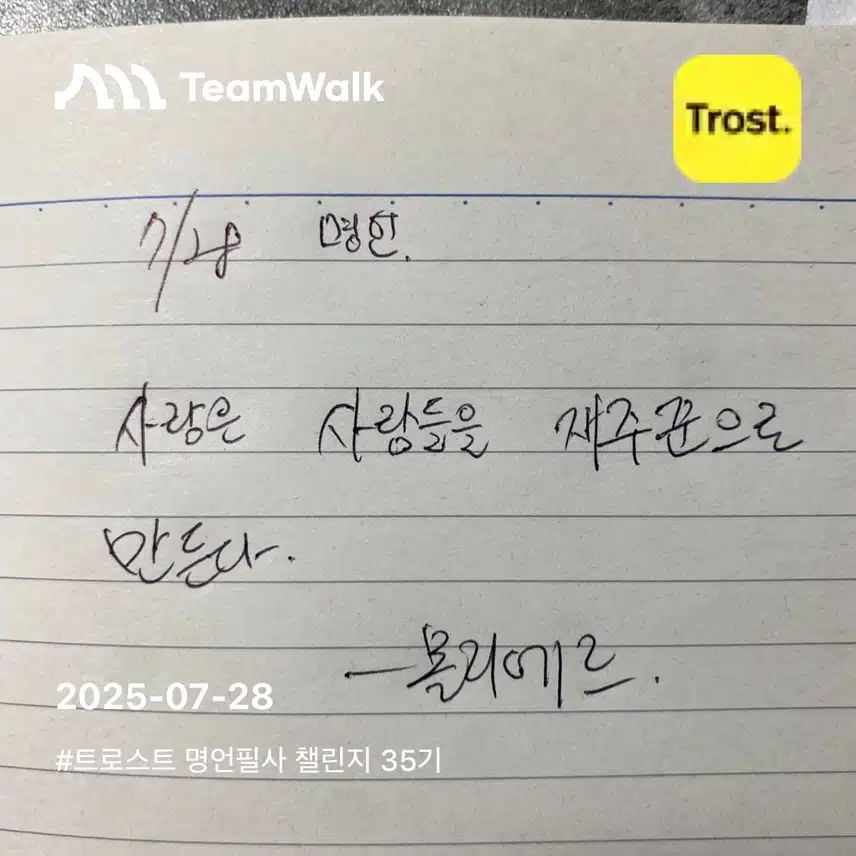 TeamWalk
Trost.
7/28 명언.
사랑은 사람들을 재주꾼으로
만든다.
—몰리에르.
2025-07-28
#트로스트 명언필사 챌린지 35기